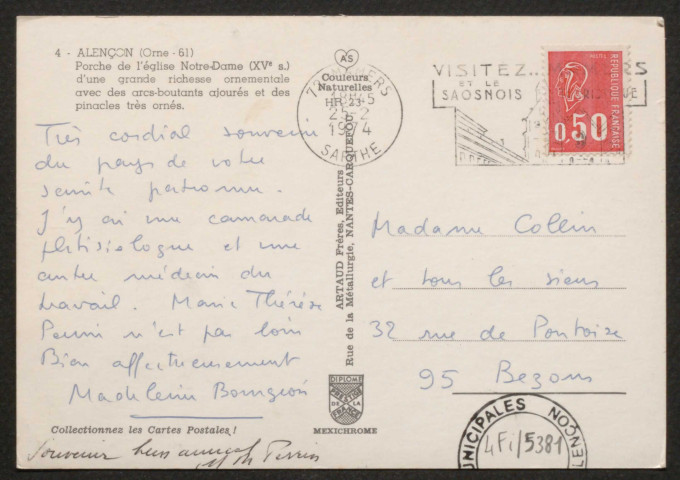 4 - ALENÇON (Orne - 61)
Porche de l'église Notre-Dame (XVe s.)
d'une grande richesse ornementale
avec des arcs-boutants ajourés et des
pinacles très ornés.
Très cordial souvenir
du pays de votre
sainte patronne.
J'y ai une camarade
phtisiologue et une
autre médecin du
travail. Marie Thérèse
Perrin n'est pas loin
Bien affectueusement
Madeleine Bourgeois
Collectionnez les Cartes Postales !
Souvenir bien amical
M Th Perrin
AS
Couleurs
Naturelles
ARTAUD Frères, Editeurs
Rue de la Métallurgie, NANTES-CARQUEFOU
DIPLOME
PRESTIGE
DE LA
FRANCE
MEXICHROME
72 MAMERS
25-2
1974
SARTHE
VISITEZ...
ET LE
SAOSNOIS
REPUBLIQUE FRANÇAISE
0,50
Madame Collin
et tous les siens
32 rue de Pontoise
95 Bezons
MUNICIPALES
ALENÇON
4Fi/5381